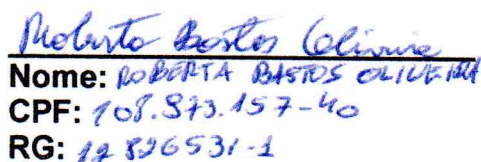 Roberta Bastos Oliveira
Nome: ROBERTA BASTOS OLIVEIRA
CPF: 108.973.157-40
RG: 12 826531-1